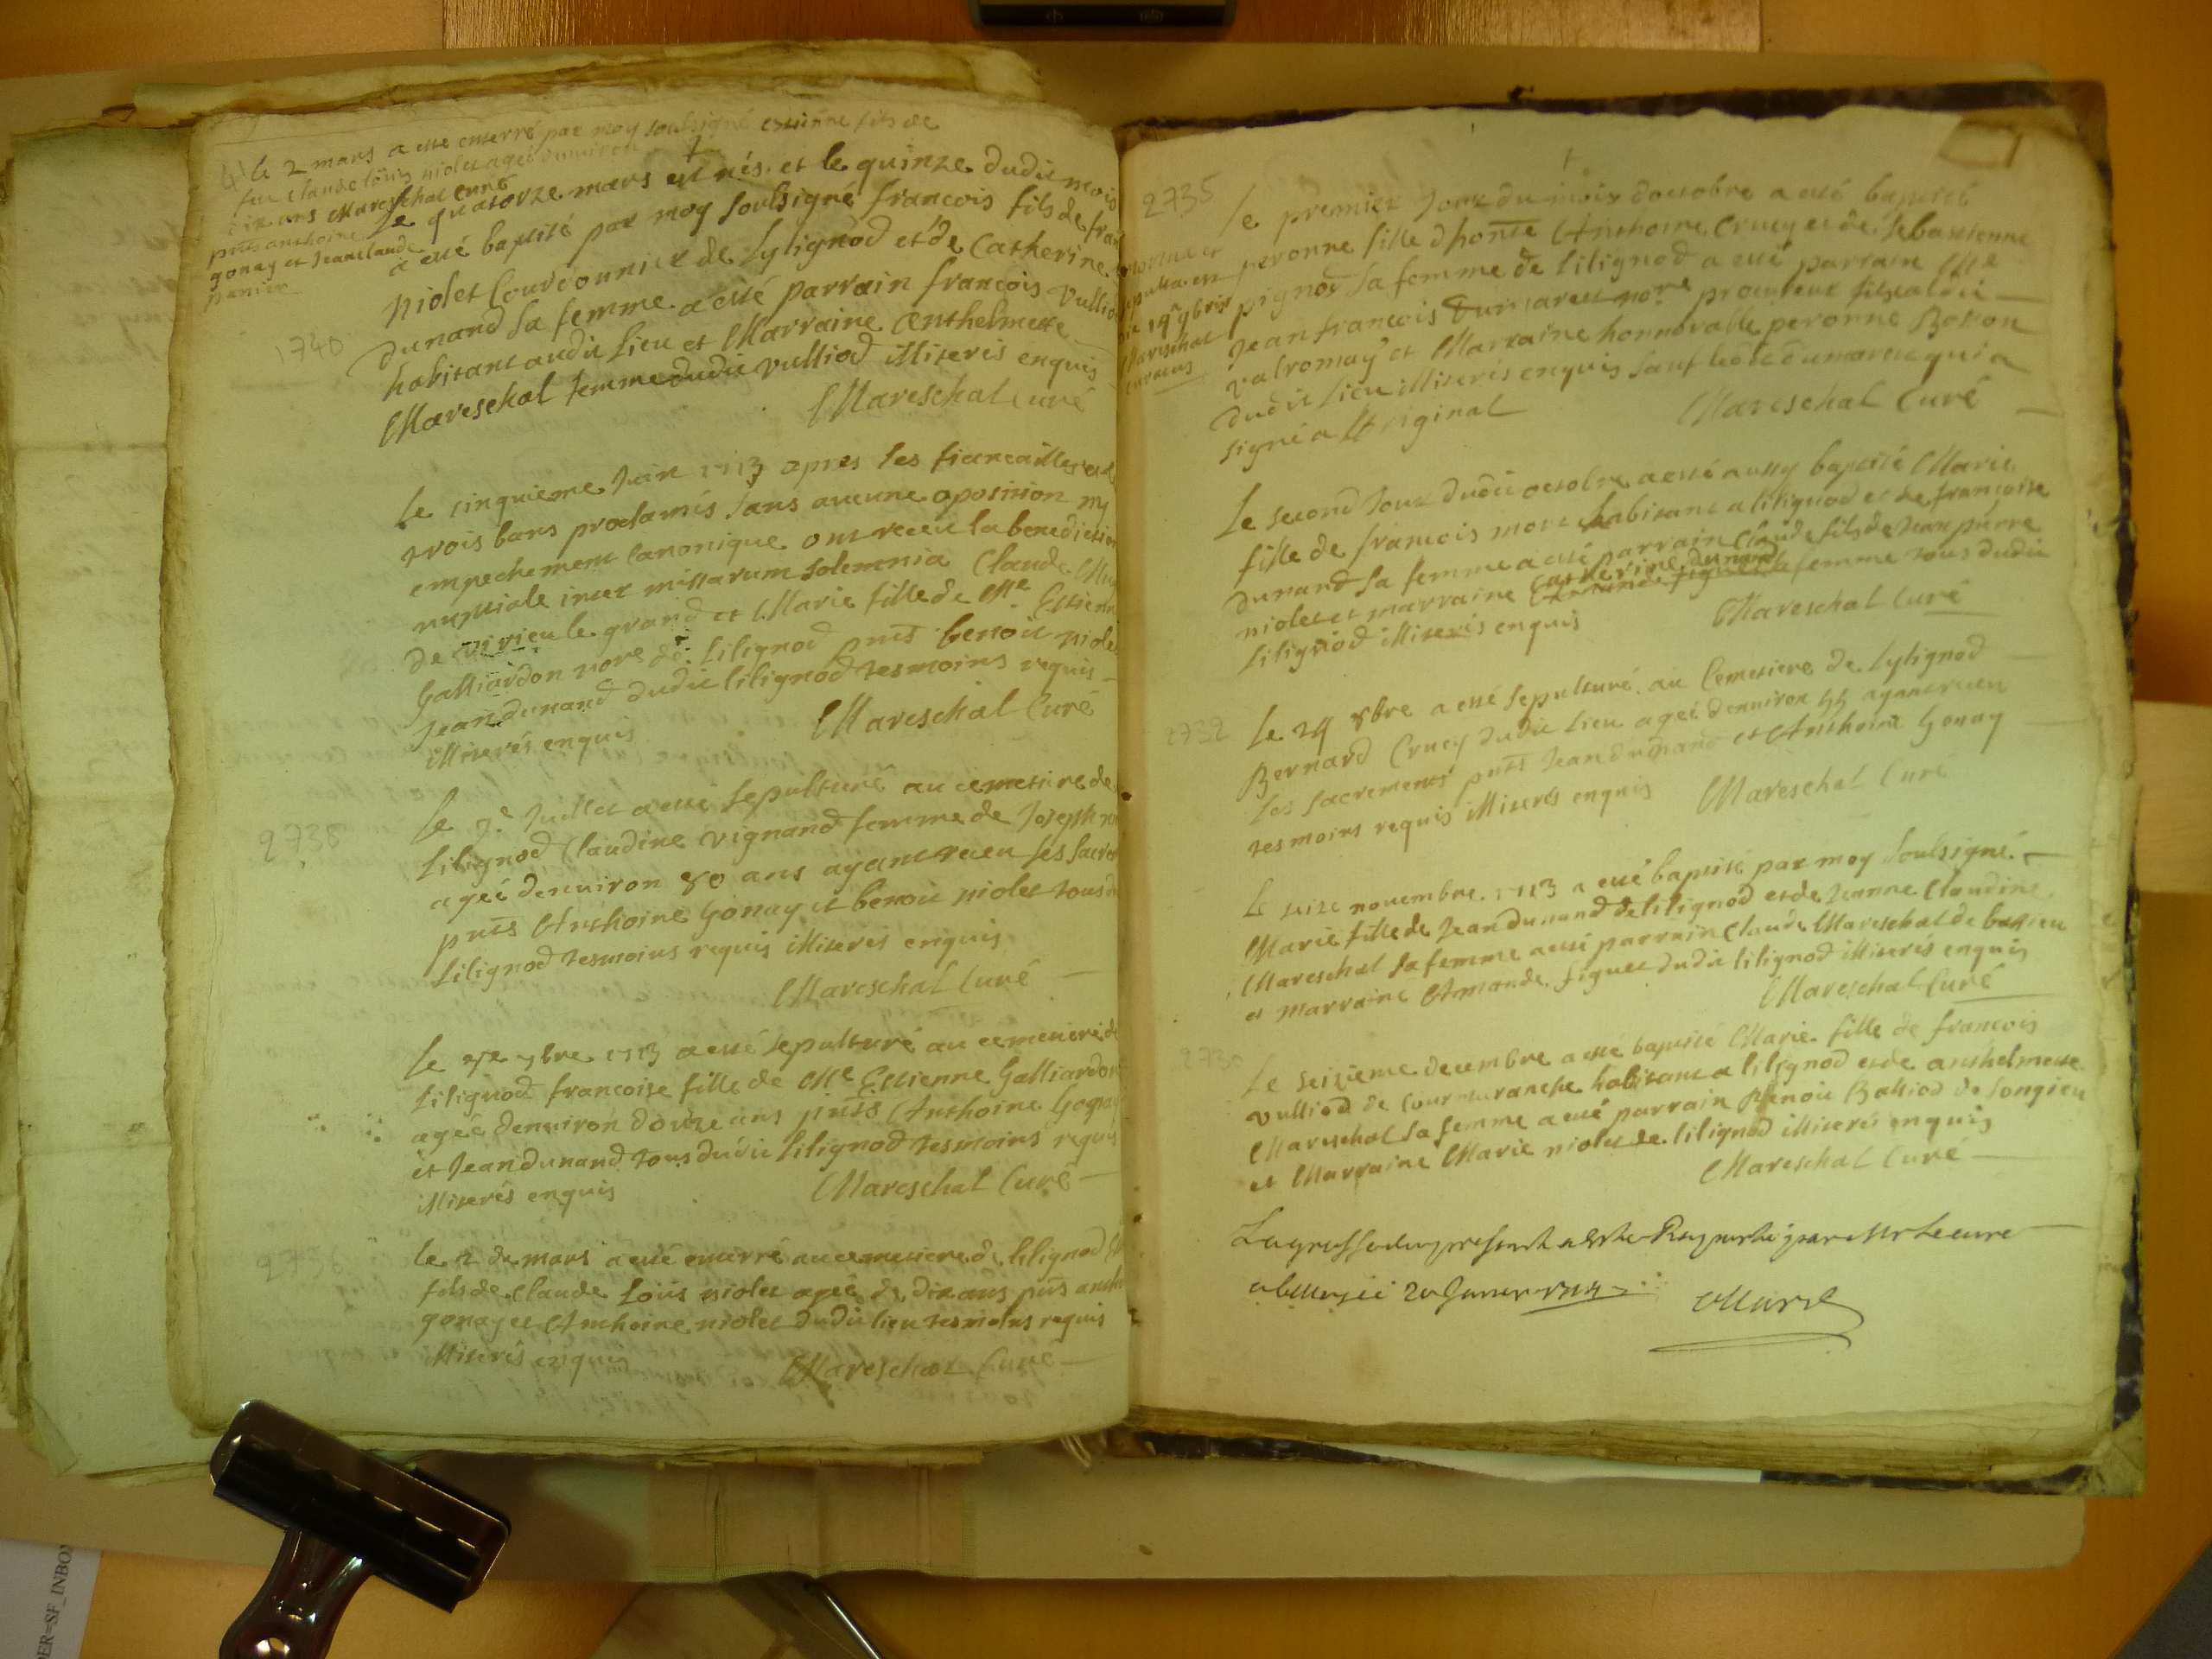 le 2 mars a esté enterré par moy soubsigné estienne fils de
feu Claude louis niolet ageé denviron
dix ans Mareschal curé
pnts anthoine
gonay et Jeanclaude
panier
Le quatorze mars est nés et le quinze dudit mois
a esté baptisé par moy soubsigné francois fils de fran
niolet Courdounier de Lylignod et de Catherine
dunand sa femme a esté parrain francois Vulliod
habitant audit lieu et Marraine Anthelmette
Mareschal femme dudit vulliod illiterés enquis
Mareschal Curé
1740
Le cinquieme Juin 1713 apres les fiancailles et
trois bans proclamés sans aucune oposition ny
empechement canonique ont receu la benediction
nuptiale inter missarum solemnia Claude
de virieu le grand et Marie fille de Mre Estienne
Galliardon nore de lilignod pnts benoit niolet
Jean dunand dudit lilignod tesmoins requis
illiterés enquis
Mareschal Curé
2738
Le 7e Juillet a esté sepulturé au cemetiere de
Lilignod Claudine vignand femme de Joseph
ageé denuiron 80 ans ayant receu les sacre
pnts Anthoine Gonay et benoit niolet tous d
Lilignod tesmoins requis illiterés enquis
Mareschal Curé
Le 7bre 1713 a esté sepulturé au cemetiere de
Lilignod francoise fille de Mre Estienne Galliardon
ageé denuiron douze ans pnts Anthoine Gonay
et Jean dunand tous dudit lilignod tesmoins requis
illiterés enquis
Mareschal Curé
le 2 de mars a esté enterré au cemetiere de lilignod
fils de Claude Loüis niolet ageé de dix ans pnts anth
gonay et Anthoine niolet dudit lieu tesmoins requis
illiterés enquis
Mareschal Curé
2735
Le premier Jour du mois doctobre a esté baptisé
peronne fille dhonte Anthoine Crucy et de Sebastienne
pignod sa femme de lilignod a esté parrain Mre
Jean francois Dumarest nore procureur
valromay et Marraine honnorable peronne Bonon
dudit lieu illiterés enquis sauf ledit dumarest qui a
signé a Loriginal
Mareschal Curé
mortua et
sepulta est
die 19e 9bris
Mareschal
curatus
Le second Jour dudit octobre a esté aussy baptisé Marie
fille de francois more habitant a lilignod et de francoise
dunand sa femme a esté parrain Claude fils de Jean pierre
niolet et marraine Catherine dunand femme tous dudit
lilignod illiterés enquis
Mareschal Curé
Le 24 8bre a esté sepulturé au Cemetiere de Lylignod
Bernard Crucy dudit lieu ageé denuiron 55 ayant receu
les sacrements pnts Jean dunand et Anthoine Gonay
tesmoins requis illiterés enquis
Mareschal Curé
Le seize novembre 1713 a esté baptisé par moy soubsigné
Marie fille de Jean dunand de lilignod et de Jeanne Claudine
Mareschal sa femme a esté parrain Claude Mareschal de
et marraine Amande figuet dudit lilignod illiterés enquis
Mareschal Curé
Le seizieme decembre a esté baptisé Marie fille de francois
vulliod de Courmaranche habitant a lilignod et de anthelmette
Mareschal sa femme a esté parrain Benoit Balliod de Songieu
et Marraine Marie niolet de lilignod illiterés enquis
Mareschal Curé
La grosse du present a este Raporteé par Mr le curé
a belley ce 20 Janvier 1714